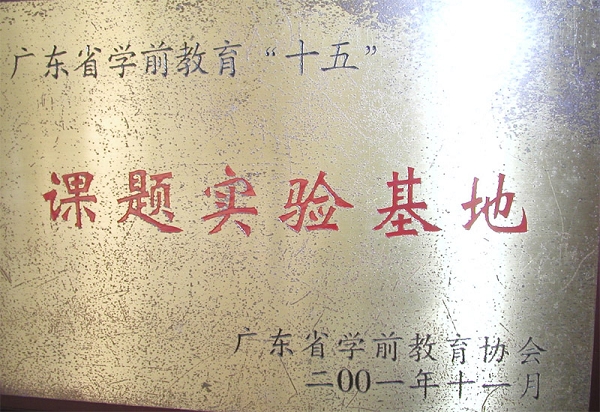 广东省学前教育“十五”
课题实验基地
广东省学前教育协会
二00一年十一月